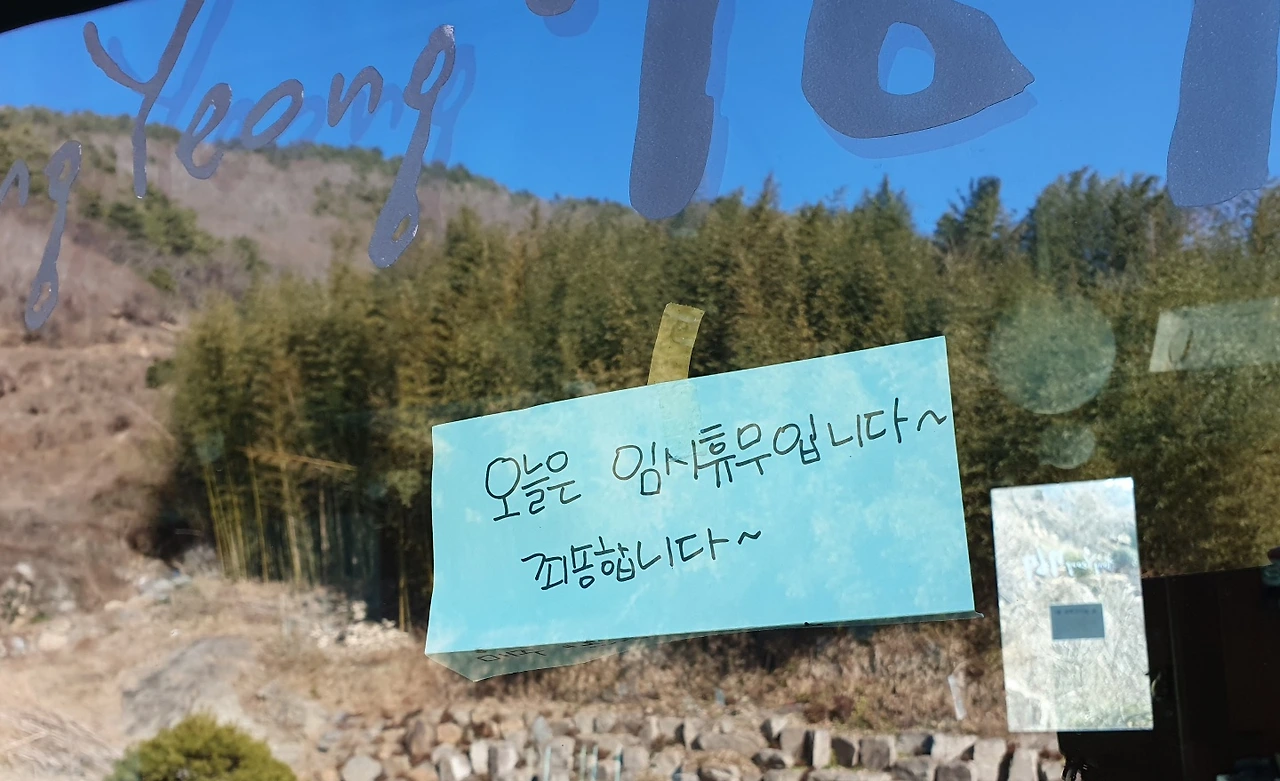 Yeong
오늘은 임시휴무입니다~
죄송합니다~